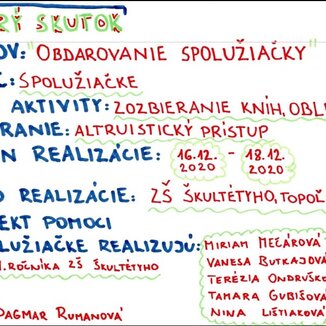 RÝ SKUTOK
OV: "OBDAROVANIE SPOLUŽIAČKY"
: SPOLUŽIAČKE
AKTIVITY: ZOZBIERANIE KNÍH, OBL
RANIE: ALTRUISTICKÝ PRÍSTUP
N REALIZÁCIE: 16.12. 2020 - 18.12. 2020
O REALIZÁCIE: ZŠ ŠKULTÉTYHO, TOPOĽ
EKT POMOCI
LUŽIAČKE REALIZUJÚ:
.ROČNÍKA ZŠ ŠKULTÉTYHO
MIRIAM MEČÁROVÁ
VANESA BUTKAJOVÁ
TERÉZIA ONDRUŠKO
TAMARA GUBIŠOVÁ
NINA LIŠTIAKOVÁ
DAGMAR RUMANOVÁ